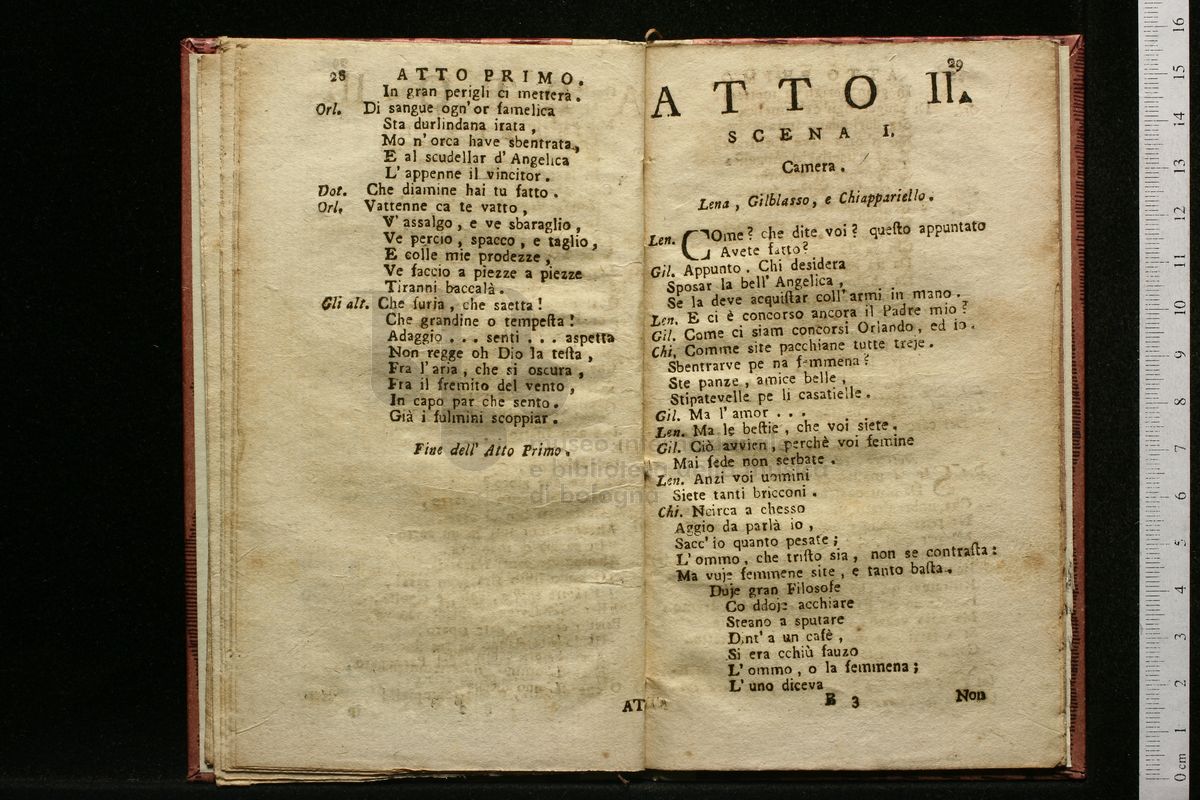 28 ATTO PRIMO.
In gran perigli ci metterà.
Orl. Di sangue ogn'or famelica
Sta durlindana irata,
Mo n'orca have sbentrata,
E al scudellar d'Angelica
L'appenne il vincitor.
Dot. Che diamine hai tu fatto.
Orl. Vattenne ca te vatto,
V'assalgo, e ve sbaraglio,
Ve percio, spacco, e taglio,
E colle mie prodezze,
Ve faccio a piezze a piezze
Tiranni baccalà.
Gli alt. Che furia, che saetta!
Che grandine o tempesta!
Adaggio ... senti ... aspetta
Non regge oh Dio la testa,
Fra l'aria, che si oscura,
Fra il fremito del vento,
In capo par che sento.
Già i fulmini scoppiar.
Fine dell' Atto Primo.
AT
29
ATTO II.
SCENA I.
Camera.
Lena, Gilblasso, e Chiappariello.
Len. COme? che dite voi? questo appuntato
Avete fatto?
Gil. Appunto. Chi desidera
Sposar la bell'Angelica,
Se la deve acquistar coll'armi in mano.
Len. E ci è concorso ancora il Padre mio?
Gil. Come ci siam concorsi Orlando, ed io.
Chi. Comme site pacchiane tutte treje.
Sbentrarve pe na femmena?
Ste panze, amice belle,
Stipatevelle pe li casatielle.
Gil. Ma l'amor ...
Len. Ma le bestie, che voi siete.
Gil. Ciò avvien, perchè voi femine
Mai fede non serbate.
Len. Anzi voi uomini
Siete tanti bricconi.
Chi. Ncirca a chesso
Aggio da parlà io,
Sacc'io quanto pesate;
L'ommo, che tristo sia, non se contrasta:
Ma vuje femmene site, e tanto basta.
Duje gran Filosofe
Co ddoje acchiare
Steano a sputare
Dint'a un cafè,
Si era cchiù fauzo
L'ommo, o la femmena;
L'uno diceva
B 3 Non
museo internazionale
e biblioteca della musica
di bologna
16
15
14
13
12
11
10
9
8
7
6
5
4
3
2
1
0 cm